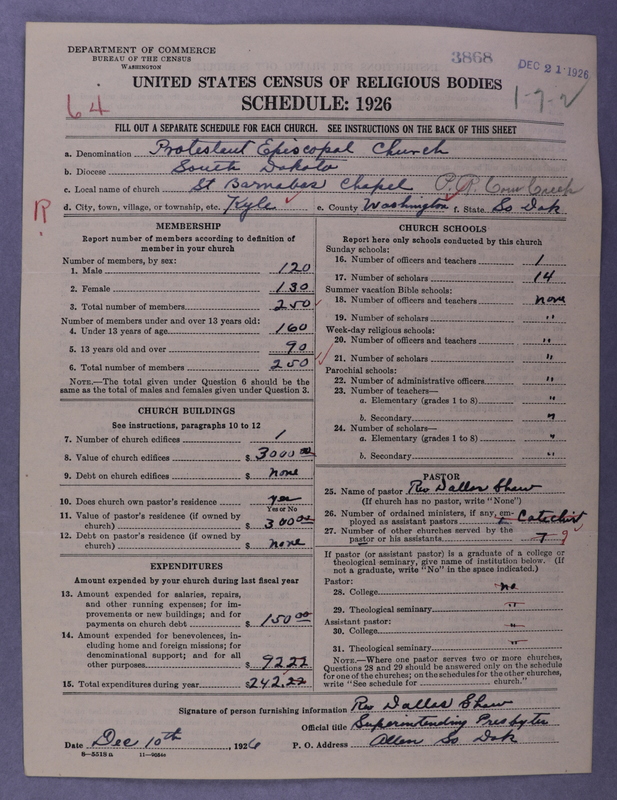 DEPARTMENT OF COMMERCE
BUREAU OF THE CENSUS
WASHINGTON
3868
DEC 21 1926
UNITED STATES CENSUS OF RELIGIOUS BODIES
SCHEDULE: 1926
64
1-9-2
FILL OUT A SEPARATE SCHEDULE FOR EACH CHURCH. SEE INSTRUCTIONS ON THE BACK OF THIS SHEET
a. Denomination Protestant Episcopal Church
b. Diocese South Dakota
c. Local name of church St Barnabas Chapel P.R. Corn Creek
d. City, town, village, or township, etc. Kyle e. County Washington f. State So Dak
R
MEMBERSHIP
Report number of members according to definition of
member in your church
Number of members, by sex:
1. Male 120
2. Female 130
3. Total number of members 250
Number of members under and over 13 years old:
4. Under 13 years of age 160
5. 13 years old and over 90
6. Total number of members 250
NOTE.—The total given under Question 6 should be the
same as the total of males and females given under Question 3.
CHURCH BUILDINGS
See instructions, paragraphs 10 to 12
7. Number of church edifices 1
8. Value of church edifices $ 3000 00
9. Debt on church edifices $ none
10. Does church own pastor's residence yes
Yes or No
11. Value of pastor's residence (if owned by
church) $ 300 00
12. Debt on pastor's residence (if owned by
church) $ none
EXPENDITURES
Amount expended by your church during last fiscal year
13. Amount expended for salaries, repairs,
and other running expenses; for im-
provements or new buildings; and for
payments on church debt $ 150 00
14. Amount expended for benevolences, in-
cluding home and foreign missions; for
denominational support; and for all
other purposes $ 92 22
15. Total expenditures during year $ 242.22
CHURCH SCHOOLS
Report here only schools conducted by this church
Sunday schools:
16. Number of officers and teachers 1
17. Number of scholars 14
Summer vacation Bible schools:
18. Number of officers and teachers none
19. Number of scholars "
Week-day religious schools:
20. Number of officers and teachers "
21. Number of scholars "
Parochial schools:
22. Number of administrative officers "
23. Number of teachers—
a. Elementary (grades 1 to 8) "
b. Secondary "
24. Number of scholars—
a. Elementary (grades 1 to 8) "
b. Secondary "
PASTOR
25. Name of pastor Rev Dallas Shaw
(If church has no pastor, write "None")
26. Number of ordained ministers, if any, em-
ployed as assistant pastors Catechist
27. Number of other churches served by the
pastor or his assistants 7 9
If pastor (or assistant pastor) is a graduate of a college or
theological seminary, give name of institution below. (If
not a graduate, write "No" in the space indicated.)
Pastor:
28. College no
29. Theological seminary "
Assistant pastor:
30. College "
31. Theological seminary "
NOTE.—Where one pastor serves two or more churches,
Questions 28 and 29 should be answered only on the schedule
for one of the churches; on the schedules for the other churches,
write "See schedule for ........ church."
Signature of person furnishing information Rev Dallas Shaw
Official title Superintending Presbyter
Date Dec 10th, 1926 P. O. Address Allen So Dak
8—5518a 11—9056